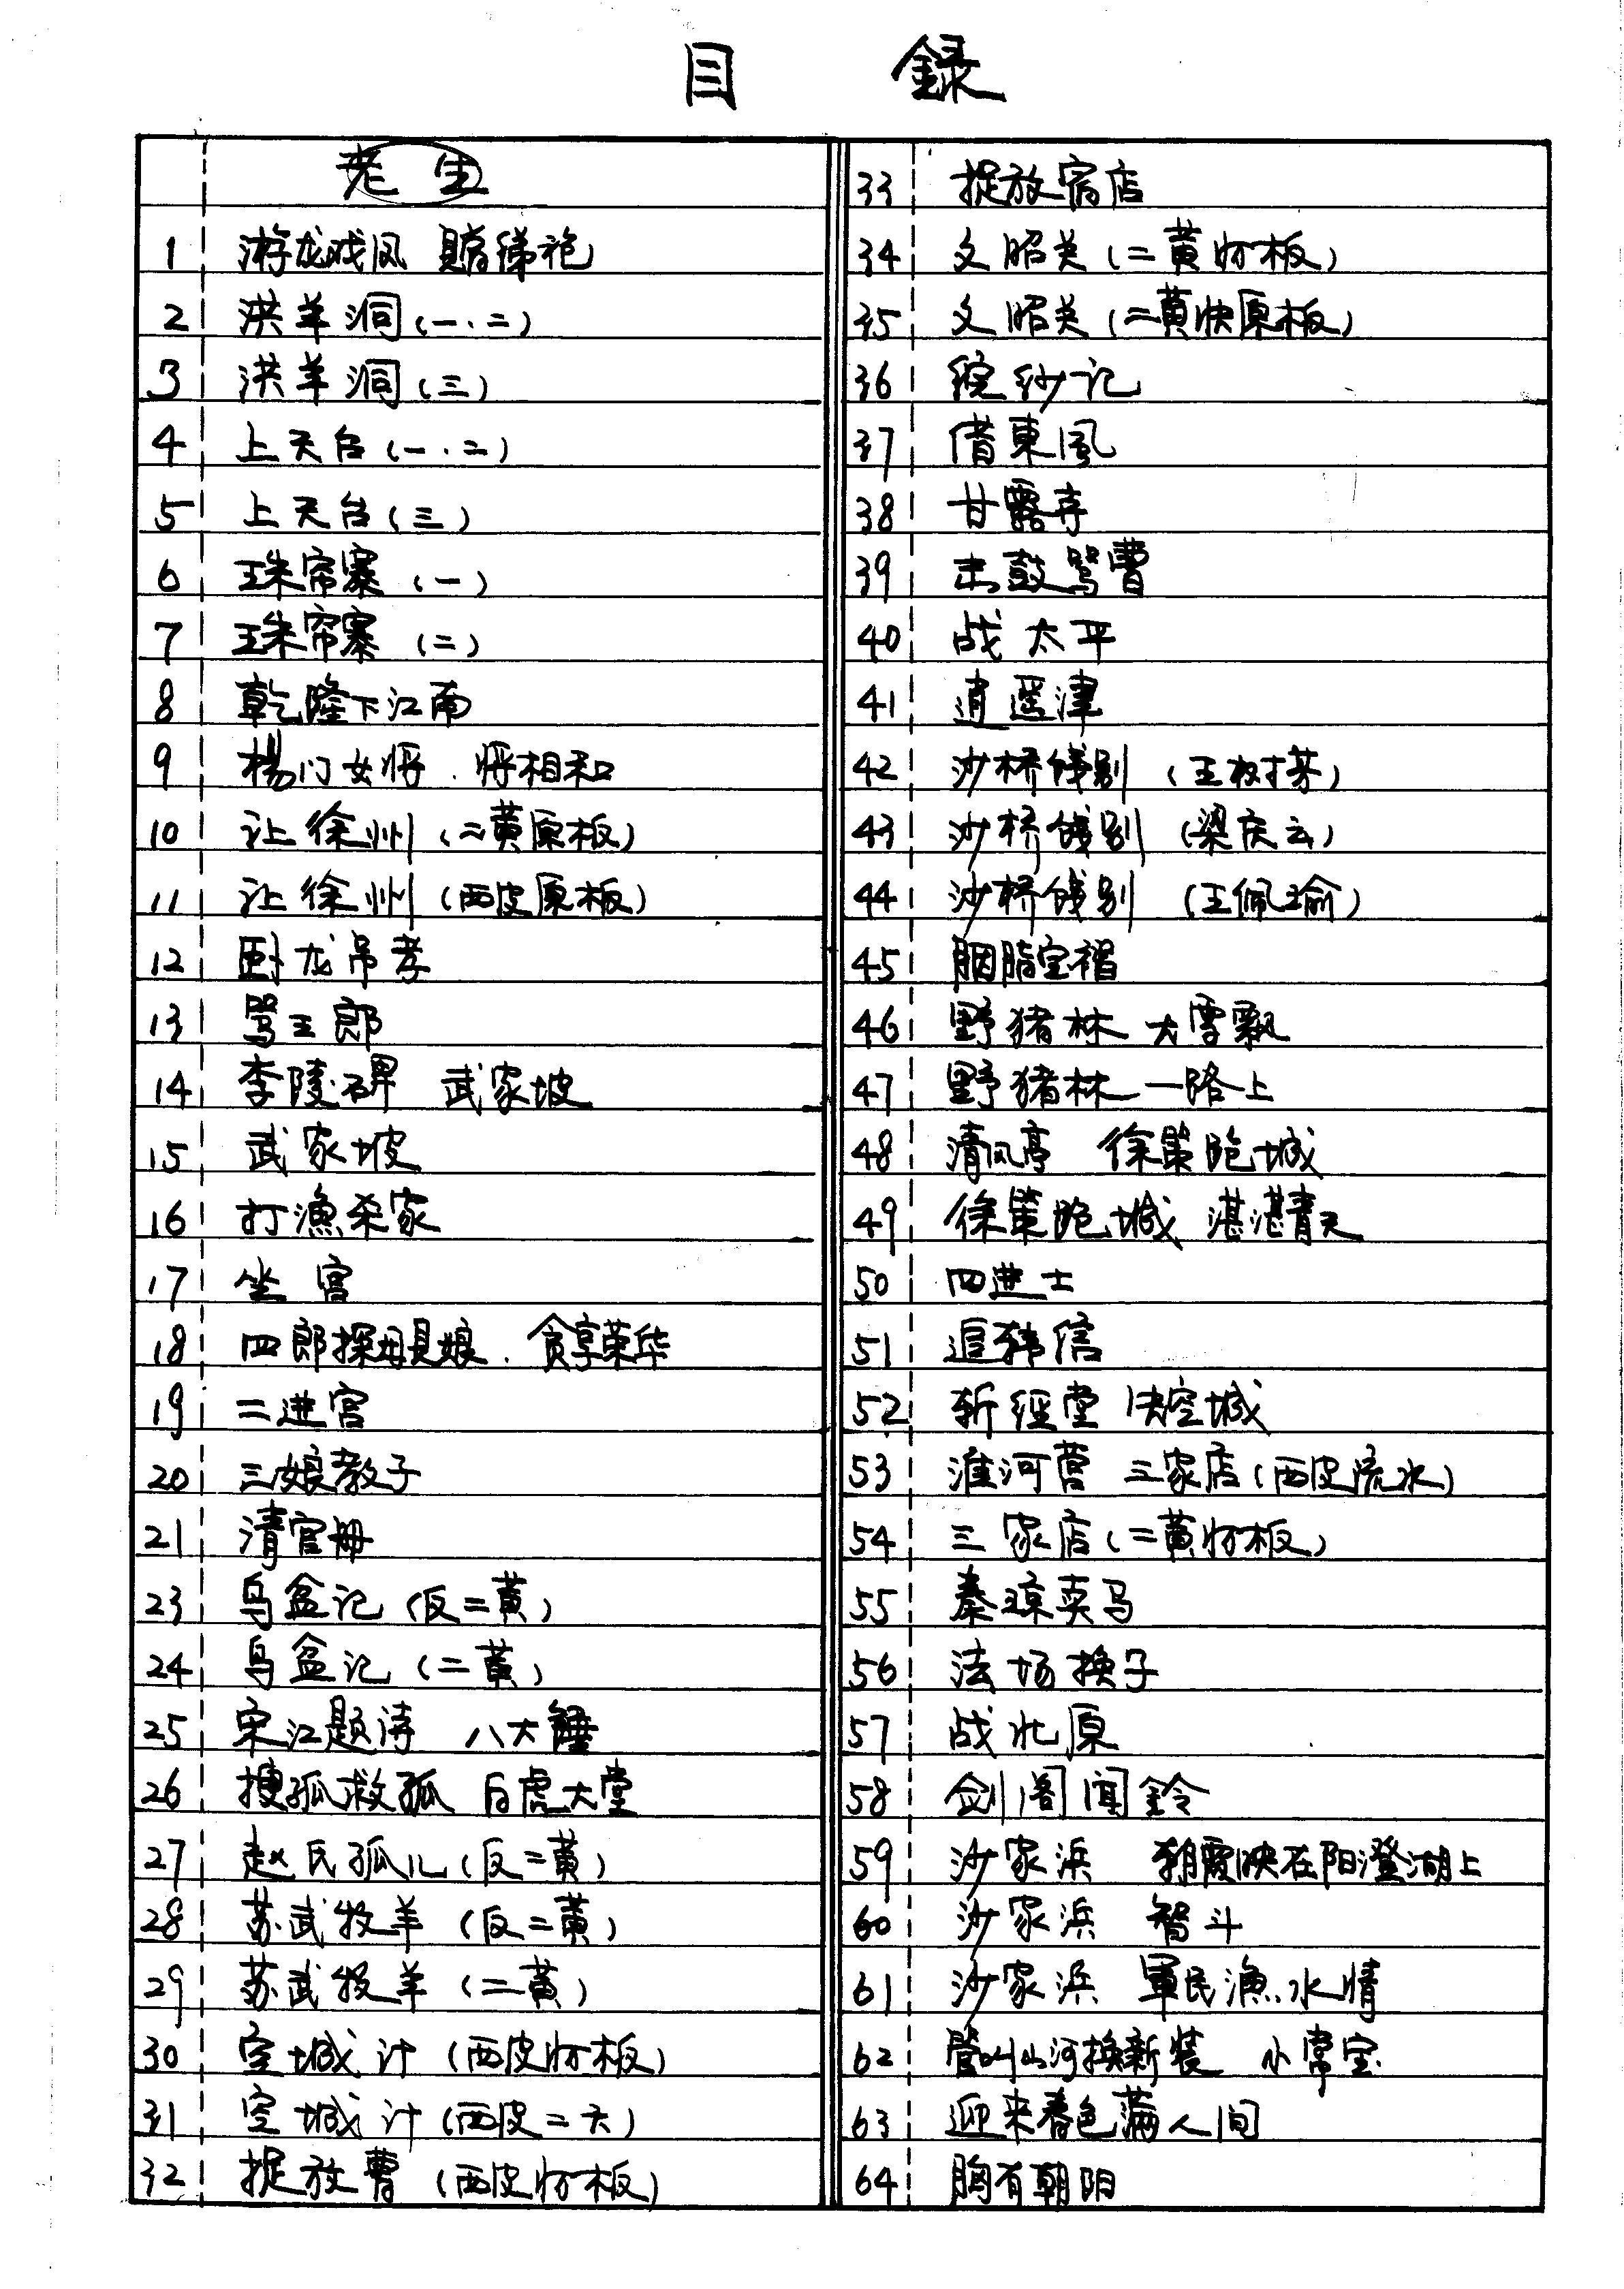 目 録
老生
1 游龙戏凤 贈绨袍
2 洪羊洞(一.二)
3 洪羊洞(三)
4 上天台(一.二)
5 上天台(三)
6 珠帘寨(一)
7 珠帘寨(二)
8 乾隆下江南
9 楊门女将.将相和
10 让徐州(二黄原板)
11 让徐州(西皮原板)
12 卧龙吊孝
13 骂王郎
14 李陵碑 武家坡
15 武家坡
16 打漁杀家
17 坐宫
18 四郎探母見娘.贪享荣华
19 二进宫
20 三娘教子
21 清官册
23 乌盆记(反二黄)
24 乌盆记(二黄)
25 宋江题诗 八大錘
26 搜孤救孤 白虎大堂
27 赵氏孤儿(反二黄)
28 苏武牧羊(反二黄)
29 苏武牧羊(二黄)
30 空城计(西皮忄板)
31 空城计(西皮二六)
32 捉放曹(西皮忄板)
33 捉放宿店
34 文昭关(二黄忄板)
35 文昭关(二黄快原板)
36 浣纱记
37 借東風
38 甘露寺
39 击鼓骂曹
40 战太平
41 逍遥津
42 沙桥饯别(王树芳)
43 沙桥饯别(梁庆云)
44 沙桥饯别(王佩瑜)
45 胭脂宝褶
46 野猪林 大雪飘
47 野猪林 一路上
48 清风亭 徐策跑城
49 徐策跑城 湛湛青天
50 四进士
51 追韩信
52 斩经堂 失空城
53 淮河营 三家店(西皮流水)
54 三家店(二黄忄板)
55 秦琼卖马
56 法场换子
57 战北原
58 剑阁闻鈴
59 沙家浜 朝霞映在阳澄湖上
60 沙家浜 智斗
61 沙家浜 軍民漁水情
62 管叫山河换新装 小常宝
63 迎来春色满人间
64 胸有朝阳